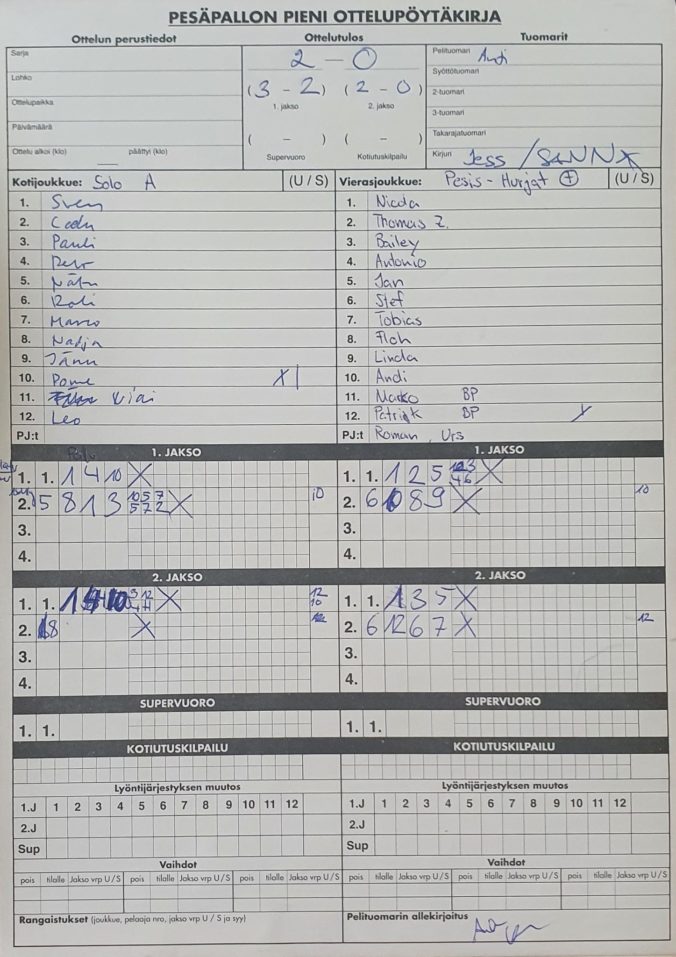 PESÄPALLON PIENI OTTELUPÖYTÄKIRJA
Ottelun perustiedot
Sarja
Lohko
Ottelupaikka
Päivämäärä
Ottelu alkoi (klo) päättyi (klo)
Ottelutulos
2 - 0
(3 - 2) (2 - 0)
1. jakso 2. jakso
( - ) ( - )
Supervuoro Kotiutuskilpailu
Tuomarit
Pelituomari
Syöttötuomari
2-tuomari
3-tuomari
Takarajatuomari
Kirjuri Jess / SANNA
Kotijoukkue: Solo A (U / S)
1. Sven
2.
3. Pauli
4.
5.
6.
7. Marco
8. Nadja
9.
10.
11.
12. Leo
PJ:t
Vierasjoukkue: Pesis-Hurjat (U / S)
1. Nicola
2. Thomas Z.
3. Bailey
4. Antonio
5. Jan
6. Stef
7. Tobias
8. Floh
9. Linda
10. Andi
11. Marko BP
12. Patrick BP
PJ:t Roman, Urs
1. JAKSO
1. 1. 1 4 10 X
2. 5 8 1 3 X 10
3.
4.
1. JAKSO
1. 1. 1 2 5 X
2. 6 8 9 X 10
3.
4.
2. JAKSO
1. 1. X 12 10
2. 8 X
3.
4.
2. JAKSO
1. 1. 1 3 5 X
2. 6 12 6 7 X 12
3.
4.
SUPERVUORO
1. 1.
SUPERVUORO
1. 1.
KOTIUTUSKILPAILU
KOTIUTUSKILPAILU
Lyöntijärjestyksen muutos
1.J 1 2 3 4 5 6 7 8 9 10 11 12
2.J
Sup
Lyöntijärjestyksen muutos
1.J 1 2 3 4 5 6 7 8 9 10 11 12
2.J
Sup
Vaihdot
pois tilalle Jakso vrp U / S pois tilalle Jakso vrp U / S pois tilalle Jakso vrp U / S
Vaihdot
pois tilalle Jakso vrp U / S pois tilalle Jakso vrp U / S pois tilalle Jakso vrp U / S
Rangaistukset (joukkue, pelaaja nro, jakso vrp U / S ja syy)
Pelituomarin allekirjoitus